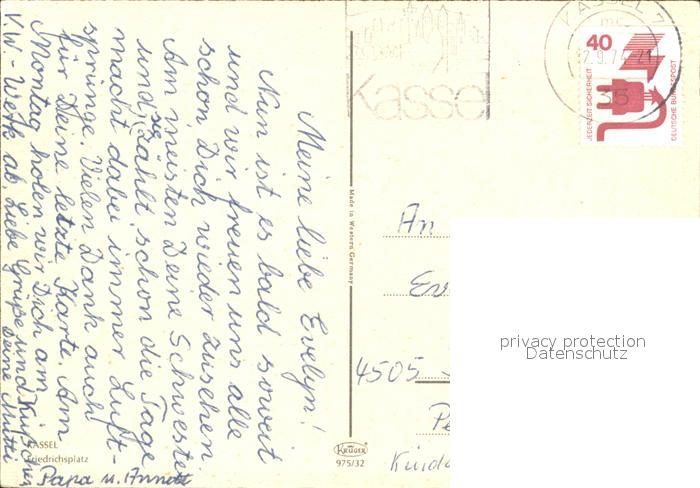 Meine liebe Evelyn!
Nun ist es bald soweit
und wir freuen uns alle
schon, Dich wieder zusehen
Am meisten Deine Schwester
und sie zählt schon die Tage
macht dabei immer Luft-
sprünge. Vielen Dank auch
für Deine letzte Karte. Am
Montag holen wir Dich am
V.W-Werk ab. Liebe Grüße und Küßchen
Deine Mutti
Papa u. Annett
KASSEL
Friedrichsplatz
Made in Western Germany
KRÜGER
975/32
Kassel
KASSEL 7
mc
2.9.74-21
35
40
JEDERZEIT SICHERHEIT
DEUTSCHE BUNDESPOST
An
4505
privacy protection
Datenschutz